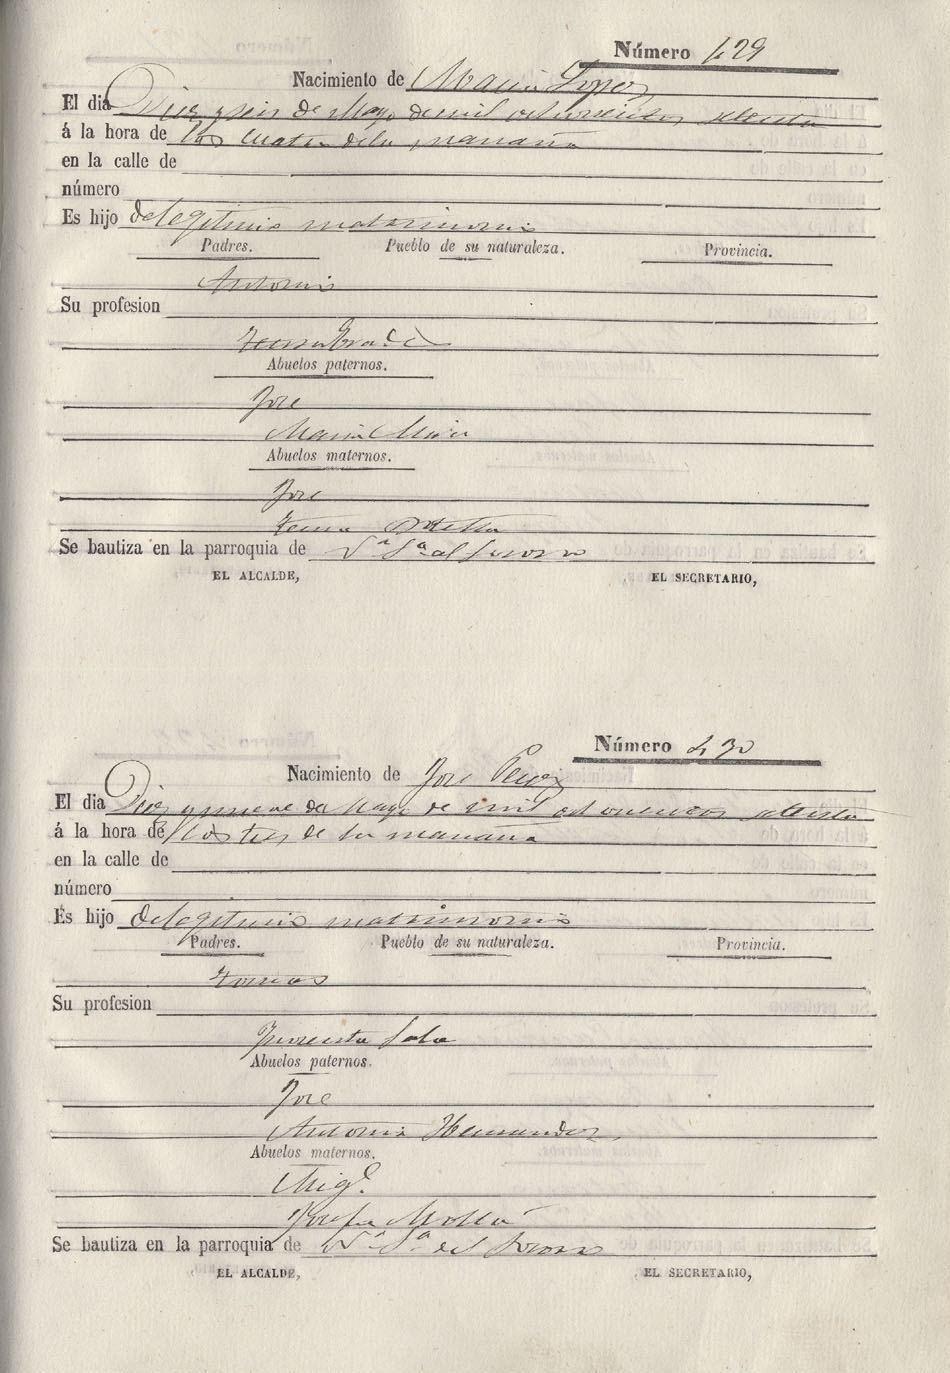 Número 429
Nacimiento de Maria Lopez
El dia Diez y seis de Mayo de mil ochocientos setenta
á la hora de las cuatro de la mañana
en la calle de
número
Es hijo de legitimo matrimonio
Padres. Pueblo de su naturaleza. Provincia.
Antonio
Su profesion
Abuelos paternos.
Jose
Maria Mira
Abuelos maternos.
Jose
Se bautiza en la parroquia de Nª Sª del Socorro
EL ALCALDE, EL SECRETARIO,
Número 430
Nacimiento de Jose Perez
El dia Diez y nueve de Mayo de mil ochocientos setenta
á la hora de las tres de la mañana
en la calle de
número
Es hijo de legitimo matrimonio
Padres. Pueblo de su naturaleza. Provincia.
Tomas
Su profesion
Sala
Abuelos paternos.
Jose
Antonia Hernandez
Abuelos maternos.
Migl.
Josefa Molla
Se bautiza en la parroquia de Nª Sª del Socorro
EL ALCALDE, EL SECRETARIO,